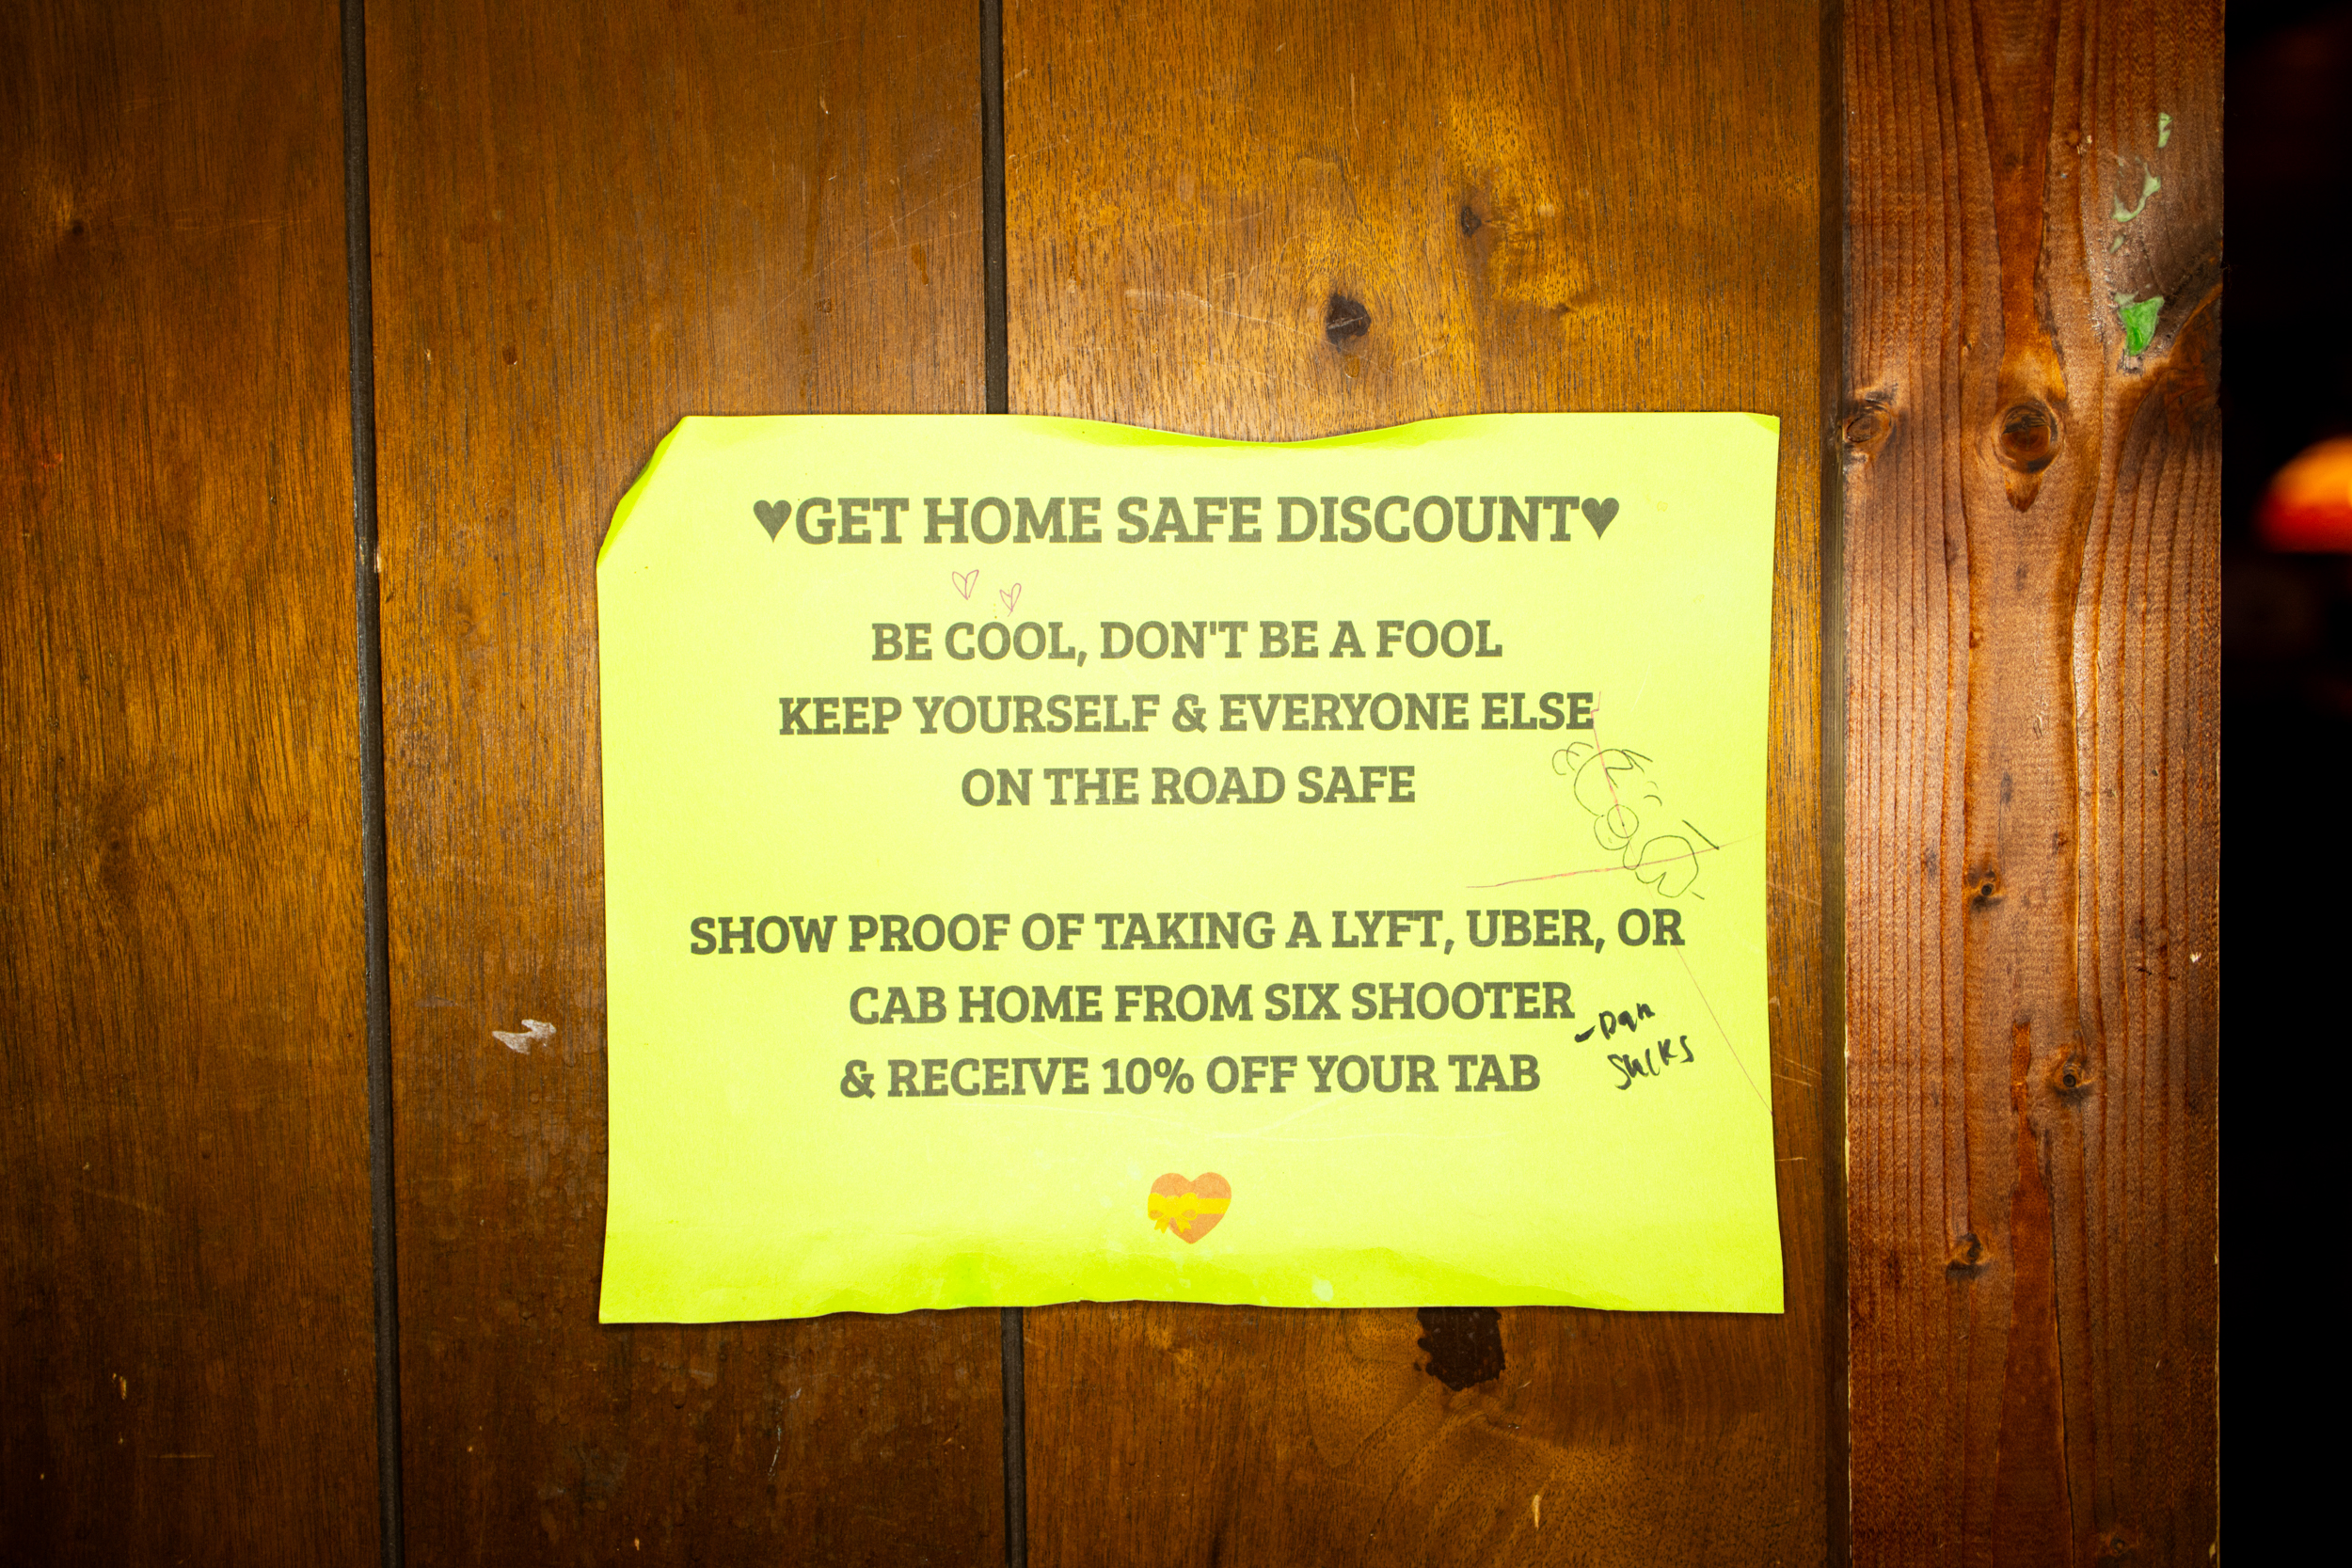 ♥GET HOME SAFE DISCOUNT♥
BE COOL, DON'T BE A FOOL
KEEP YOURSELF & EVERYONE ELSE
ON THE ROAD SAFE
SHOW PROOF OF TAKING A LYFT, UBER, OR
CAB HOME FROM SIX SHOOTER
& RECEIVE 10% OFF YOUR TAB
-Dan
SUCKS